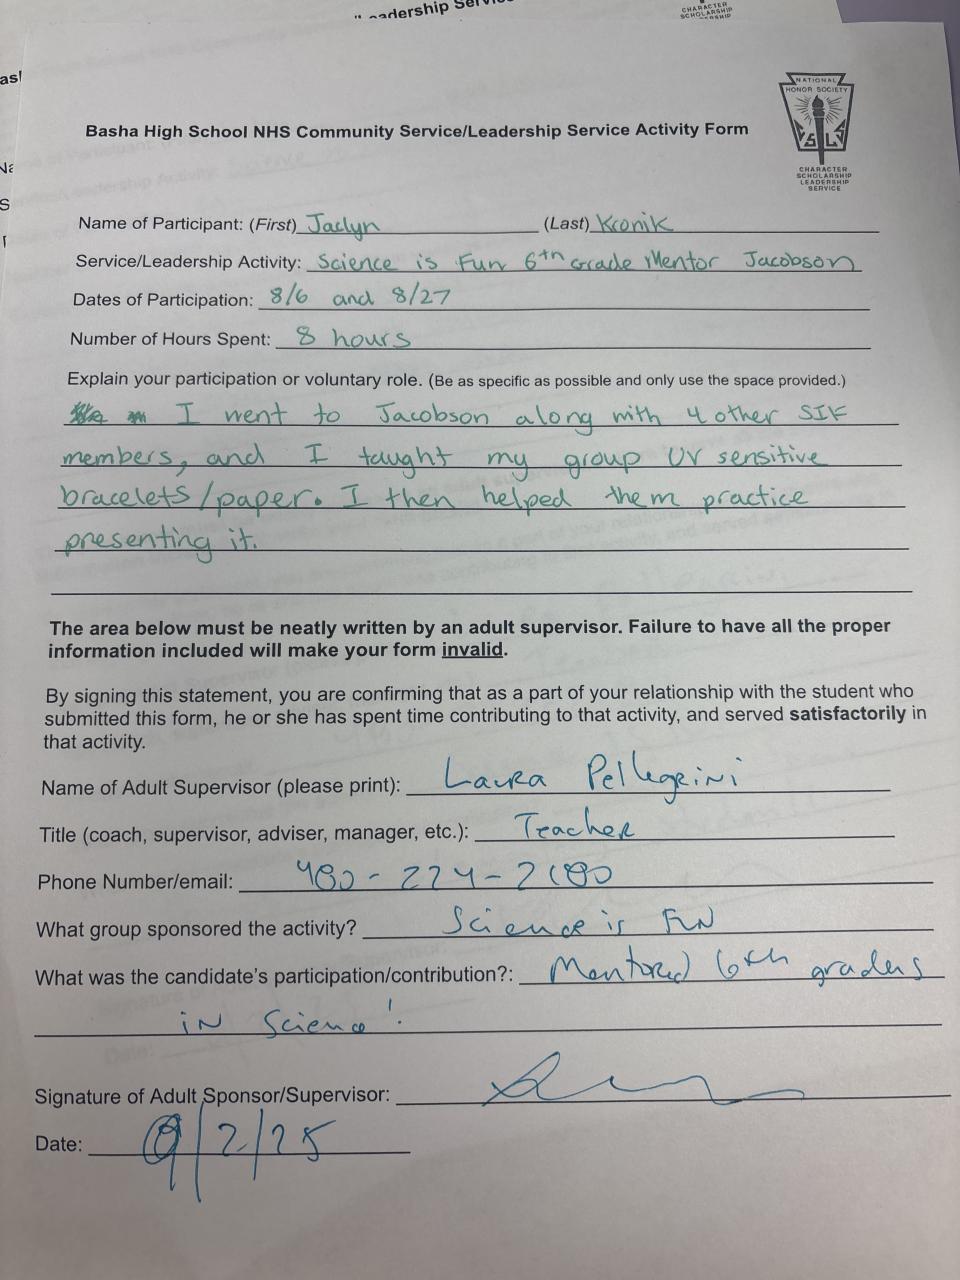 adership Servic
CHARACTER
SCHOLARSHIP
NATIONAL
HONOR SOCIETY
S L S
CHARACTER
SCHOLARSHIP
LEADERSHIP
SERVICE
Basha High School NHS Community Service/Leadership Service Activity Form
Name of Participant: (First) Jaclyn (Last) Kronik
Service/Leadership Activity: Science is Fun 6th Grade Mentor Jacobson
Dates of Participation: 8/6 and 8/27
Number of Hours Spent: 8 hours
Explain your participation or voluntary role. (Be as specific as possible and only use the space provided.)
I went to Jacobson along with 4 other SIF
members, and I taught my group UV sensitive
bracelets/paper. I then helped them practice
presenting it.
The area below must be neatly written by an adult supervisor. Failure to have all the proper
information included will make your form invalid.
By signing this statement, you are confirming that as a part of your relationship with the student who
submitted this form, he or she has spent time contributing to that activity, and served satisfactorily in
that activity.
Name of Adult Supervisor (please print): Laura Pellegrini
Title (coach, supervisor, adviser, manager, etc.): Teacher
Phone Number/email: 480-224-2180
What group sponsored the activity? Science is FUN
What was the candidate's participation/contribution?: Mentored 6th graders
in Science!
Signature of Adult Sponsor/Supervisor:
Date: 9/2/25